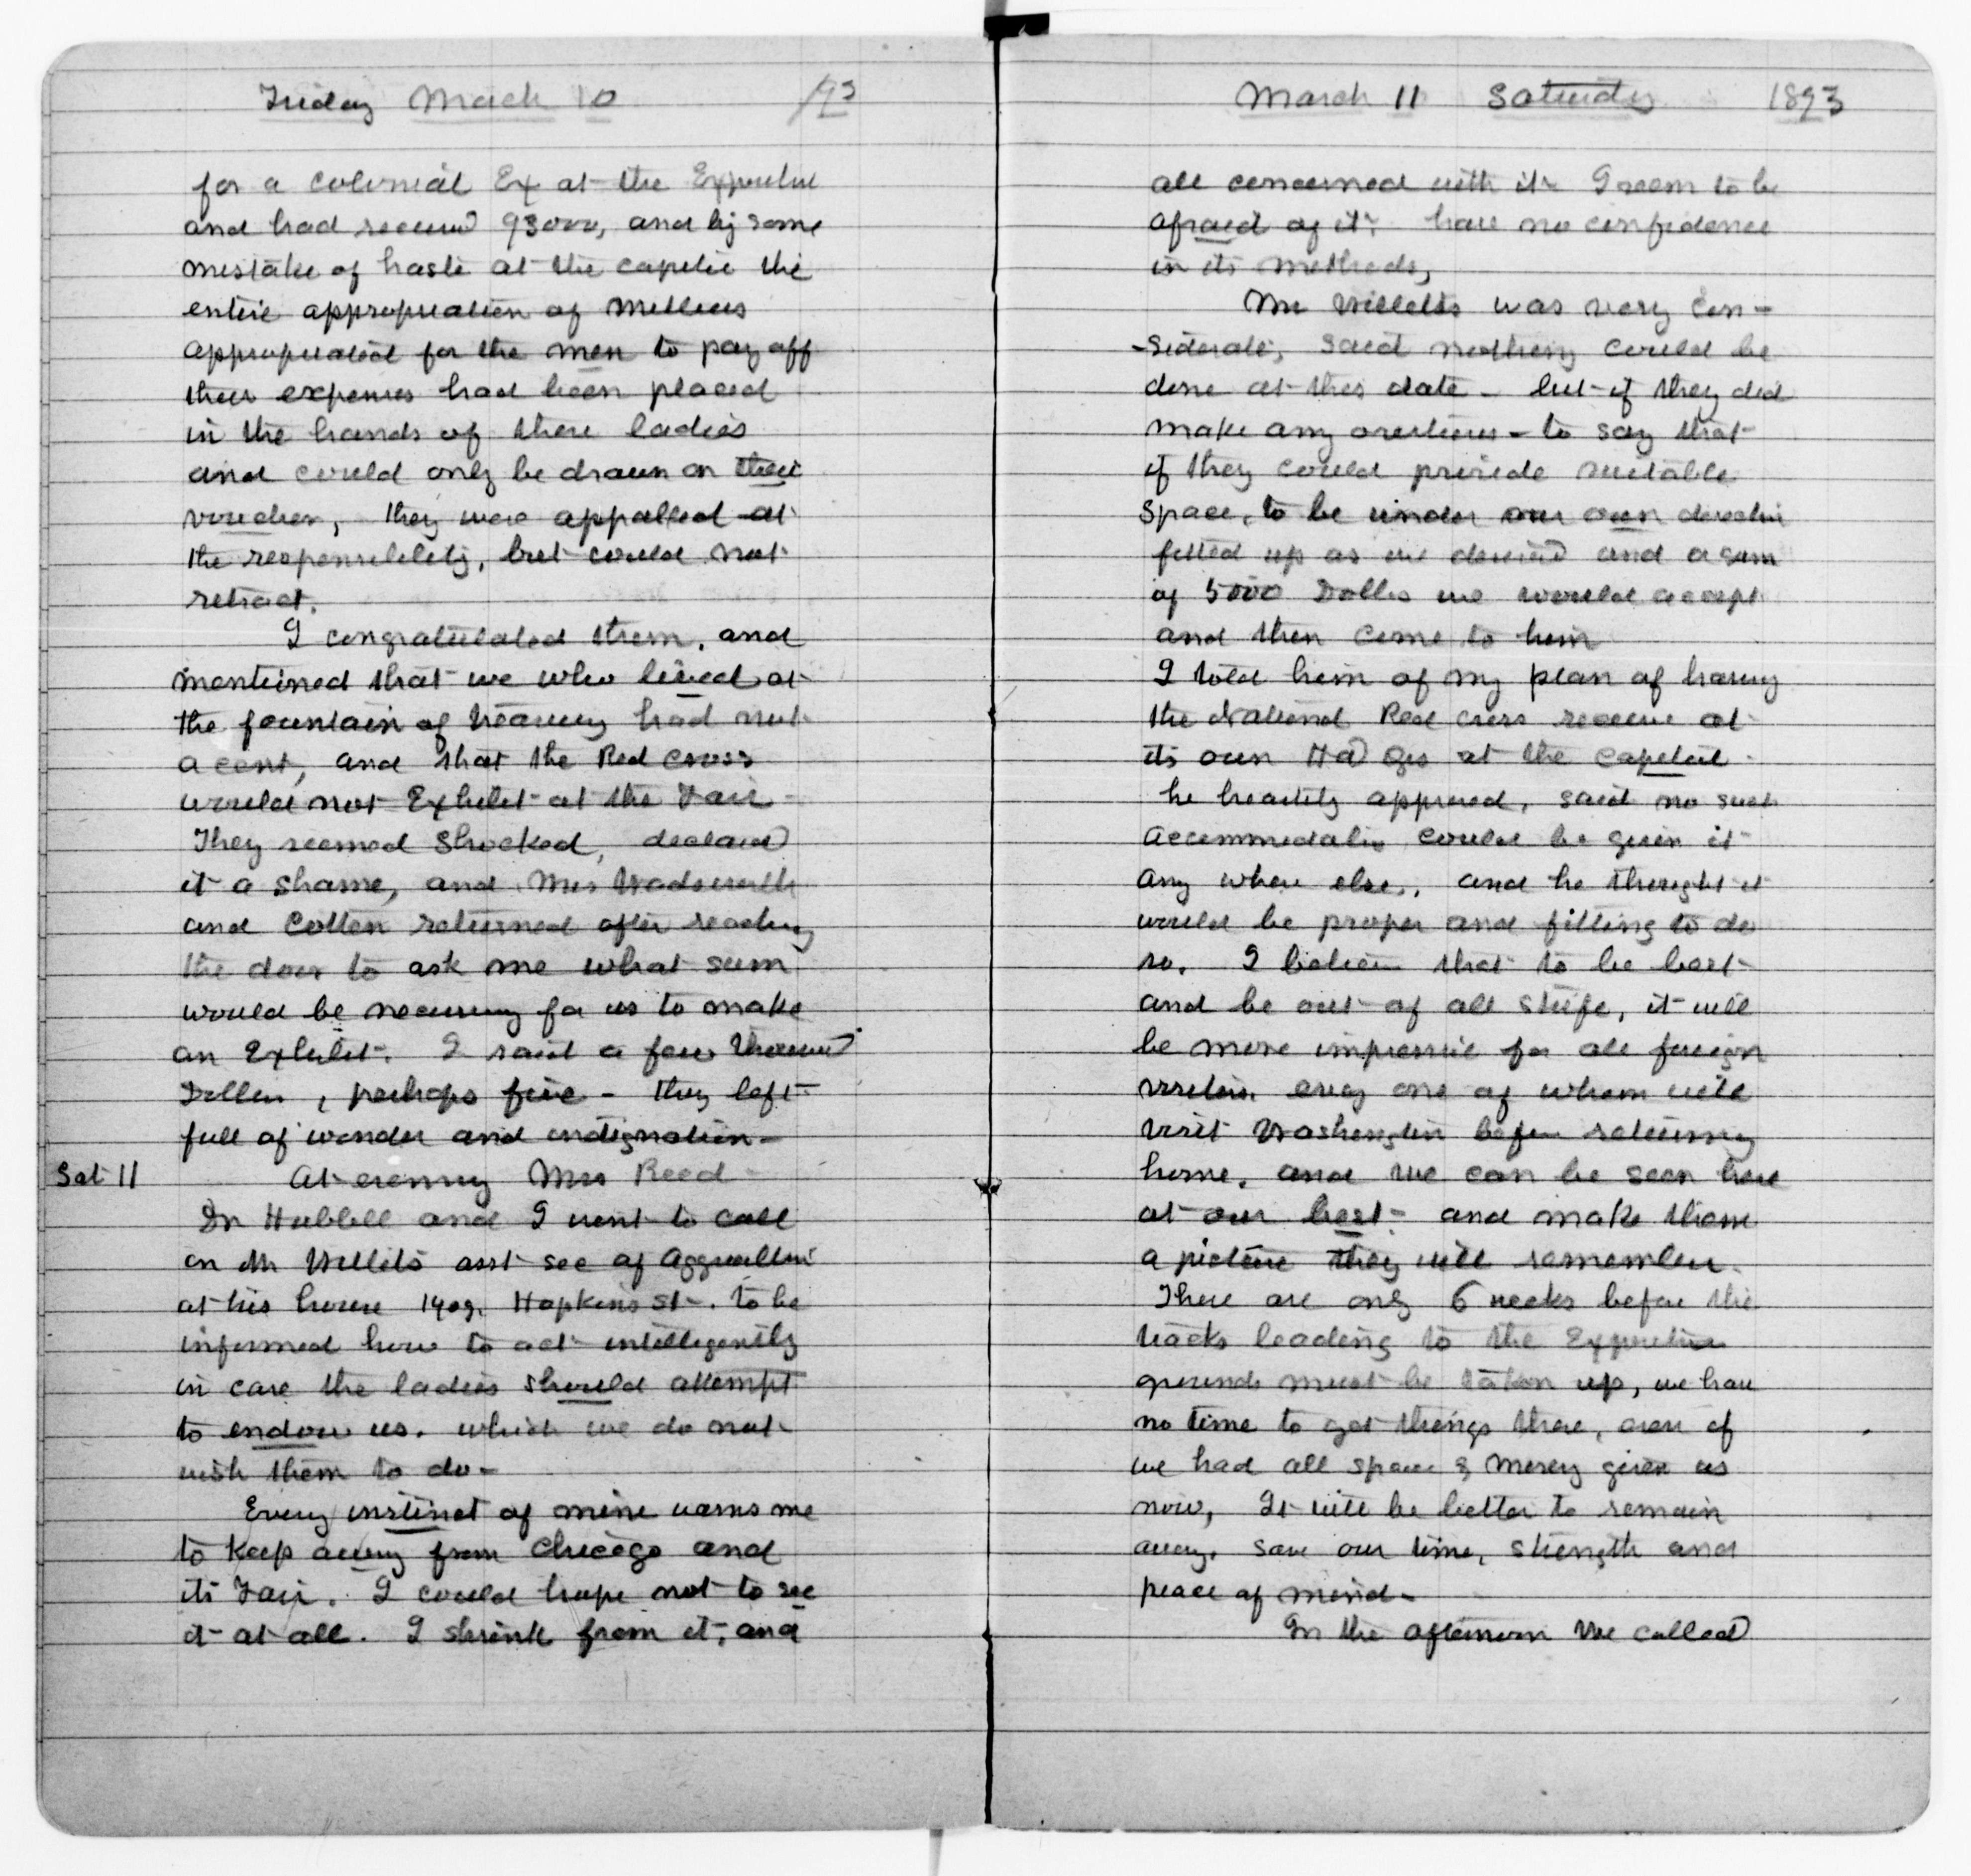 Friday March 10 /93
for a colonial Ex at the Exposition
and had received 93000, and by some
mistake of haste at the capitol the
entire appropriation of millions
appropriated for the men to pay off
their expenses had been placed
in the hands of these ladies
and could only be drawn on their
voucher, they were appalled at
the responsibility, but could not
retract.
I congratulated them, and
mentioned that we who lived at
the fountain of treasury had not
a cent, and that the Red Cross
would not Exhibit at the Fair -
They seemed shocked, declared
it a shame, and Mrs Wadsworth
and Cotten returned after reaching
the door to ask me what sum
would be necessary for us to make
an Exhibit. I said a few thousand
Dollars, perhaps five - they left
full of wonder and indignation -
Sat 11 At evening Mrs Reed -
Dr Hubbell and I went to call
on Mr Willits asst sec of Agriculture
at his house 1409. Hopkins St. to be
informed how to act intelligently
in case the ladies should attempt
to endow us. which we do not
wish them to do -
Every instinct of mine warns me
to keep away from Chicago and
its Fair. I could hope not to see
it at all. I shrink from it, and
March 11 Saturday 1893
all concerned with it. I seem to be
afraid of it. have no confidence
in its methods,
Mr Willetts was very con -
- siderate, said nothing could be
done at this date - but if they did
make any overtures - to say that
if they could provide suitable
space, to be under our own direction
fitted up as we desired and a sum
of 5000 Dollars we would accept
and then come to him
I told him of my plan of having
the National Red Cross receive at
its own Hd Qrs at the Capitol -
he heartily approved, said no such
accommodation could be given it
any where else, and he thought it
would be proper and fitting to do
so. I believe that to be best
and be out of all strife, it will
be more impressive for all foreign
visitors. every one of whom will
visit Washington before returning
home. and we can be seen here
at our best - and make them
a picture they will remember.
There are only 6 weeks before the
tracks leading to the Exposition
grounds must be taken up, we have
no time to get things there, even if
we had all space & money given us
now, It will be better to remain
away. save our time, strength and
peace of mind -
In the afternoon we called